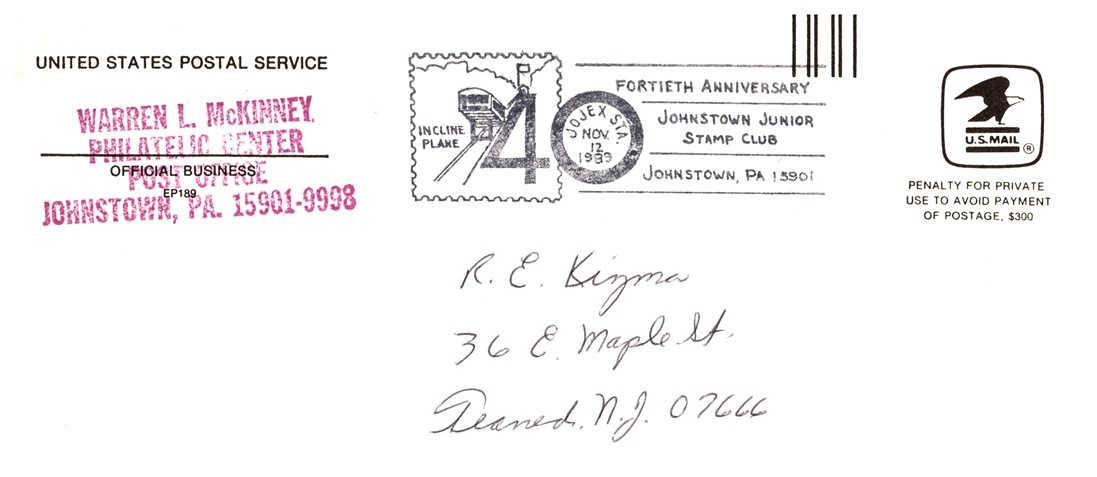 UNITED STATES POSTAL SERVICE
WARREN L. McKINNEY
PHILATELIC CENTER
OFFICIAL BUSINESS
POST OFFICE
EP189
JOHNSTOWN, PA. 15901-9998
INCLINE
PLANE
4
JOJEX STA.
NOV.
12
1989
FORTIETH ANNIVERSARY
JOHNSTOWN JUNIOR
STAMP CLUB
JOHNSTOWN, PA 15901
U.S. MAIL ®
PENALTY FOR PRIVATE
USE TO AVOID PAYMENT
OF POSTAGE, $300
R. E. Kizma
36 E. Maple St.
N.J. 07666